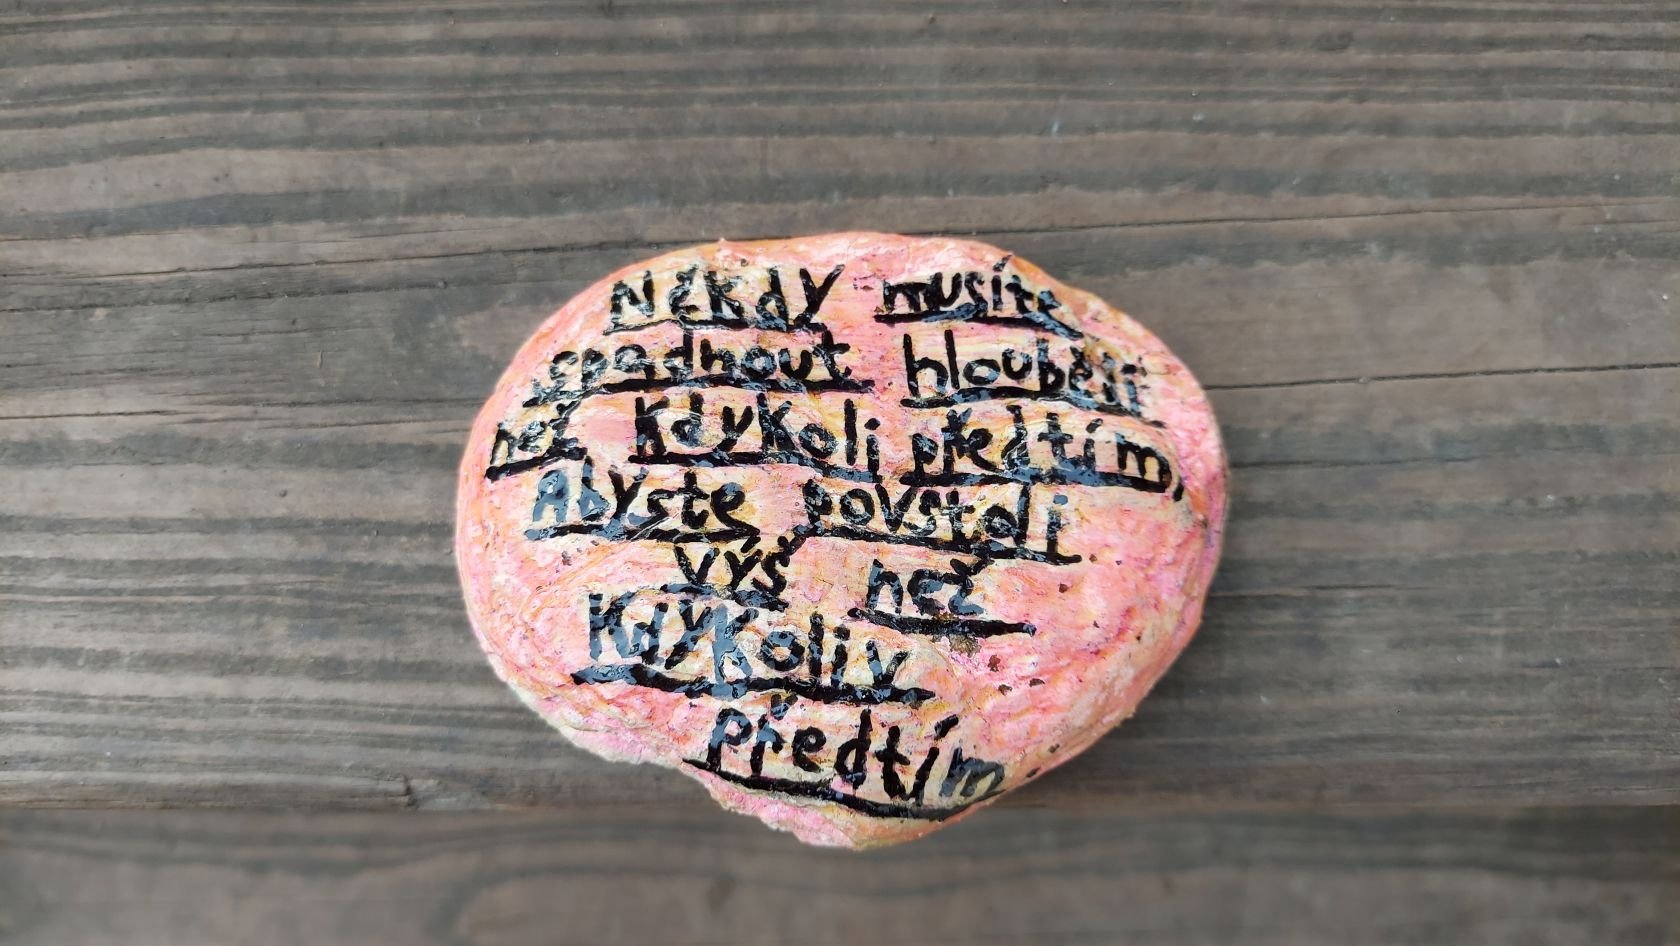 Někdy musíte
spadnout hlouběji
než kdykoli předtím,
Abyste povstali
výš než
kdykoliv
předtím